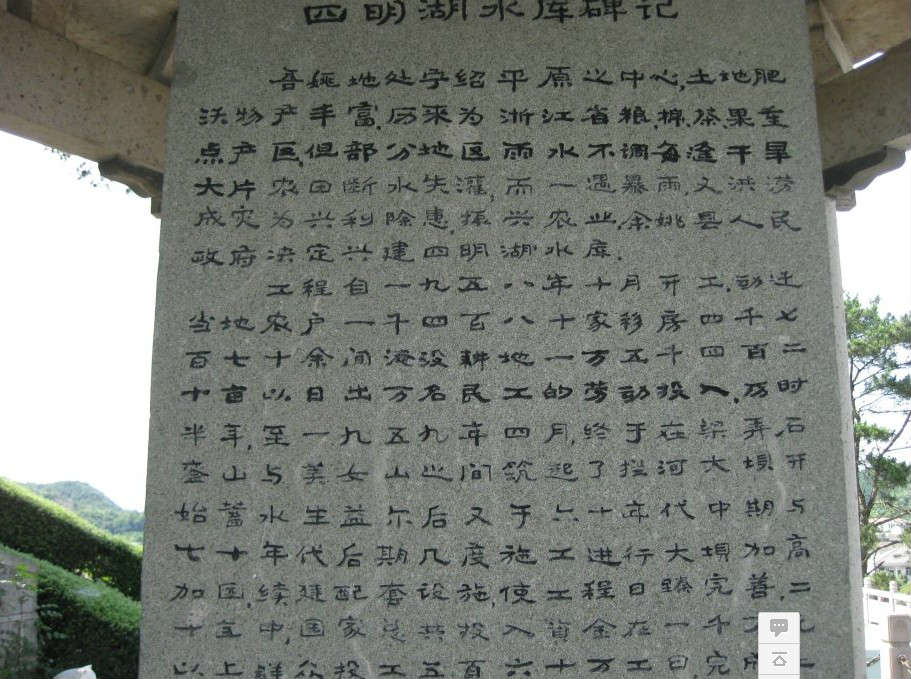 四明湖水库碑记
吾姚地处宁绍平原之中心,土地肥
沃物产丰富,历来为浙江省粮,棉,茶,果重
点产区,但部分地区雨水不调每逢干旱
大片农田断水失灌,而一遇暴雨,又洪涝
成灾为兴利除患,振兴农业,余姚县人民
政府决定兴建四明湖水库.
工程自一九五八年十月开工.动迁
当地农户一千四百八十家移房四千七
百七十余间淹没耕地一万五千四百二
十亩以日出万名民工的劳动投入,历时
半年,至一九五九年四月,终于在梁弄石
山与美女山间筑起了拦河大坝开
始蓄水生益尔后又于六十年代中期与
七十年代后期几度施工进行大坝加高
加固,续建配套设施,使工程日臻完善.二
十中,国家总共投入资金在一千万
以上群众投工五百六十万工日,完成